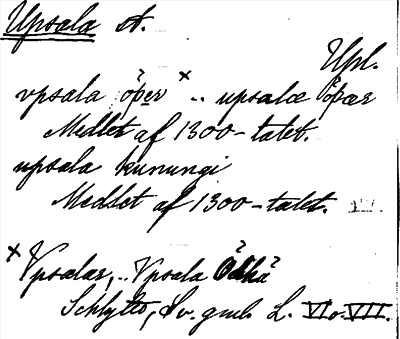 Upsala A.
Upl.
vpsala öper × .. upsalæ öpær
Medlet af 1300-talet.
upsala kunungi
Medlet af 1300-talet.
× Vpsalar, .. Vpsala
Schlyter, Sv. gml. L. VI o. VII.